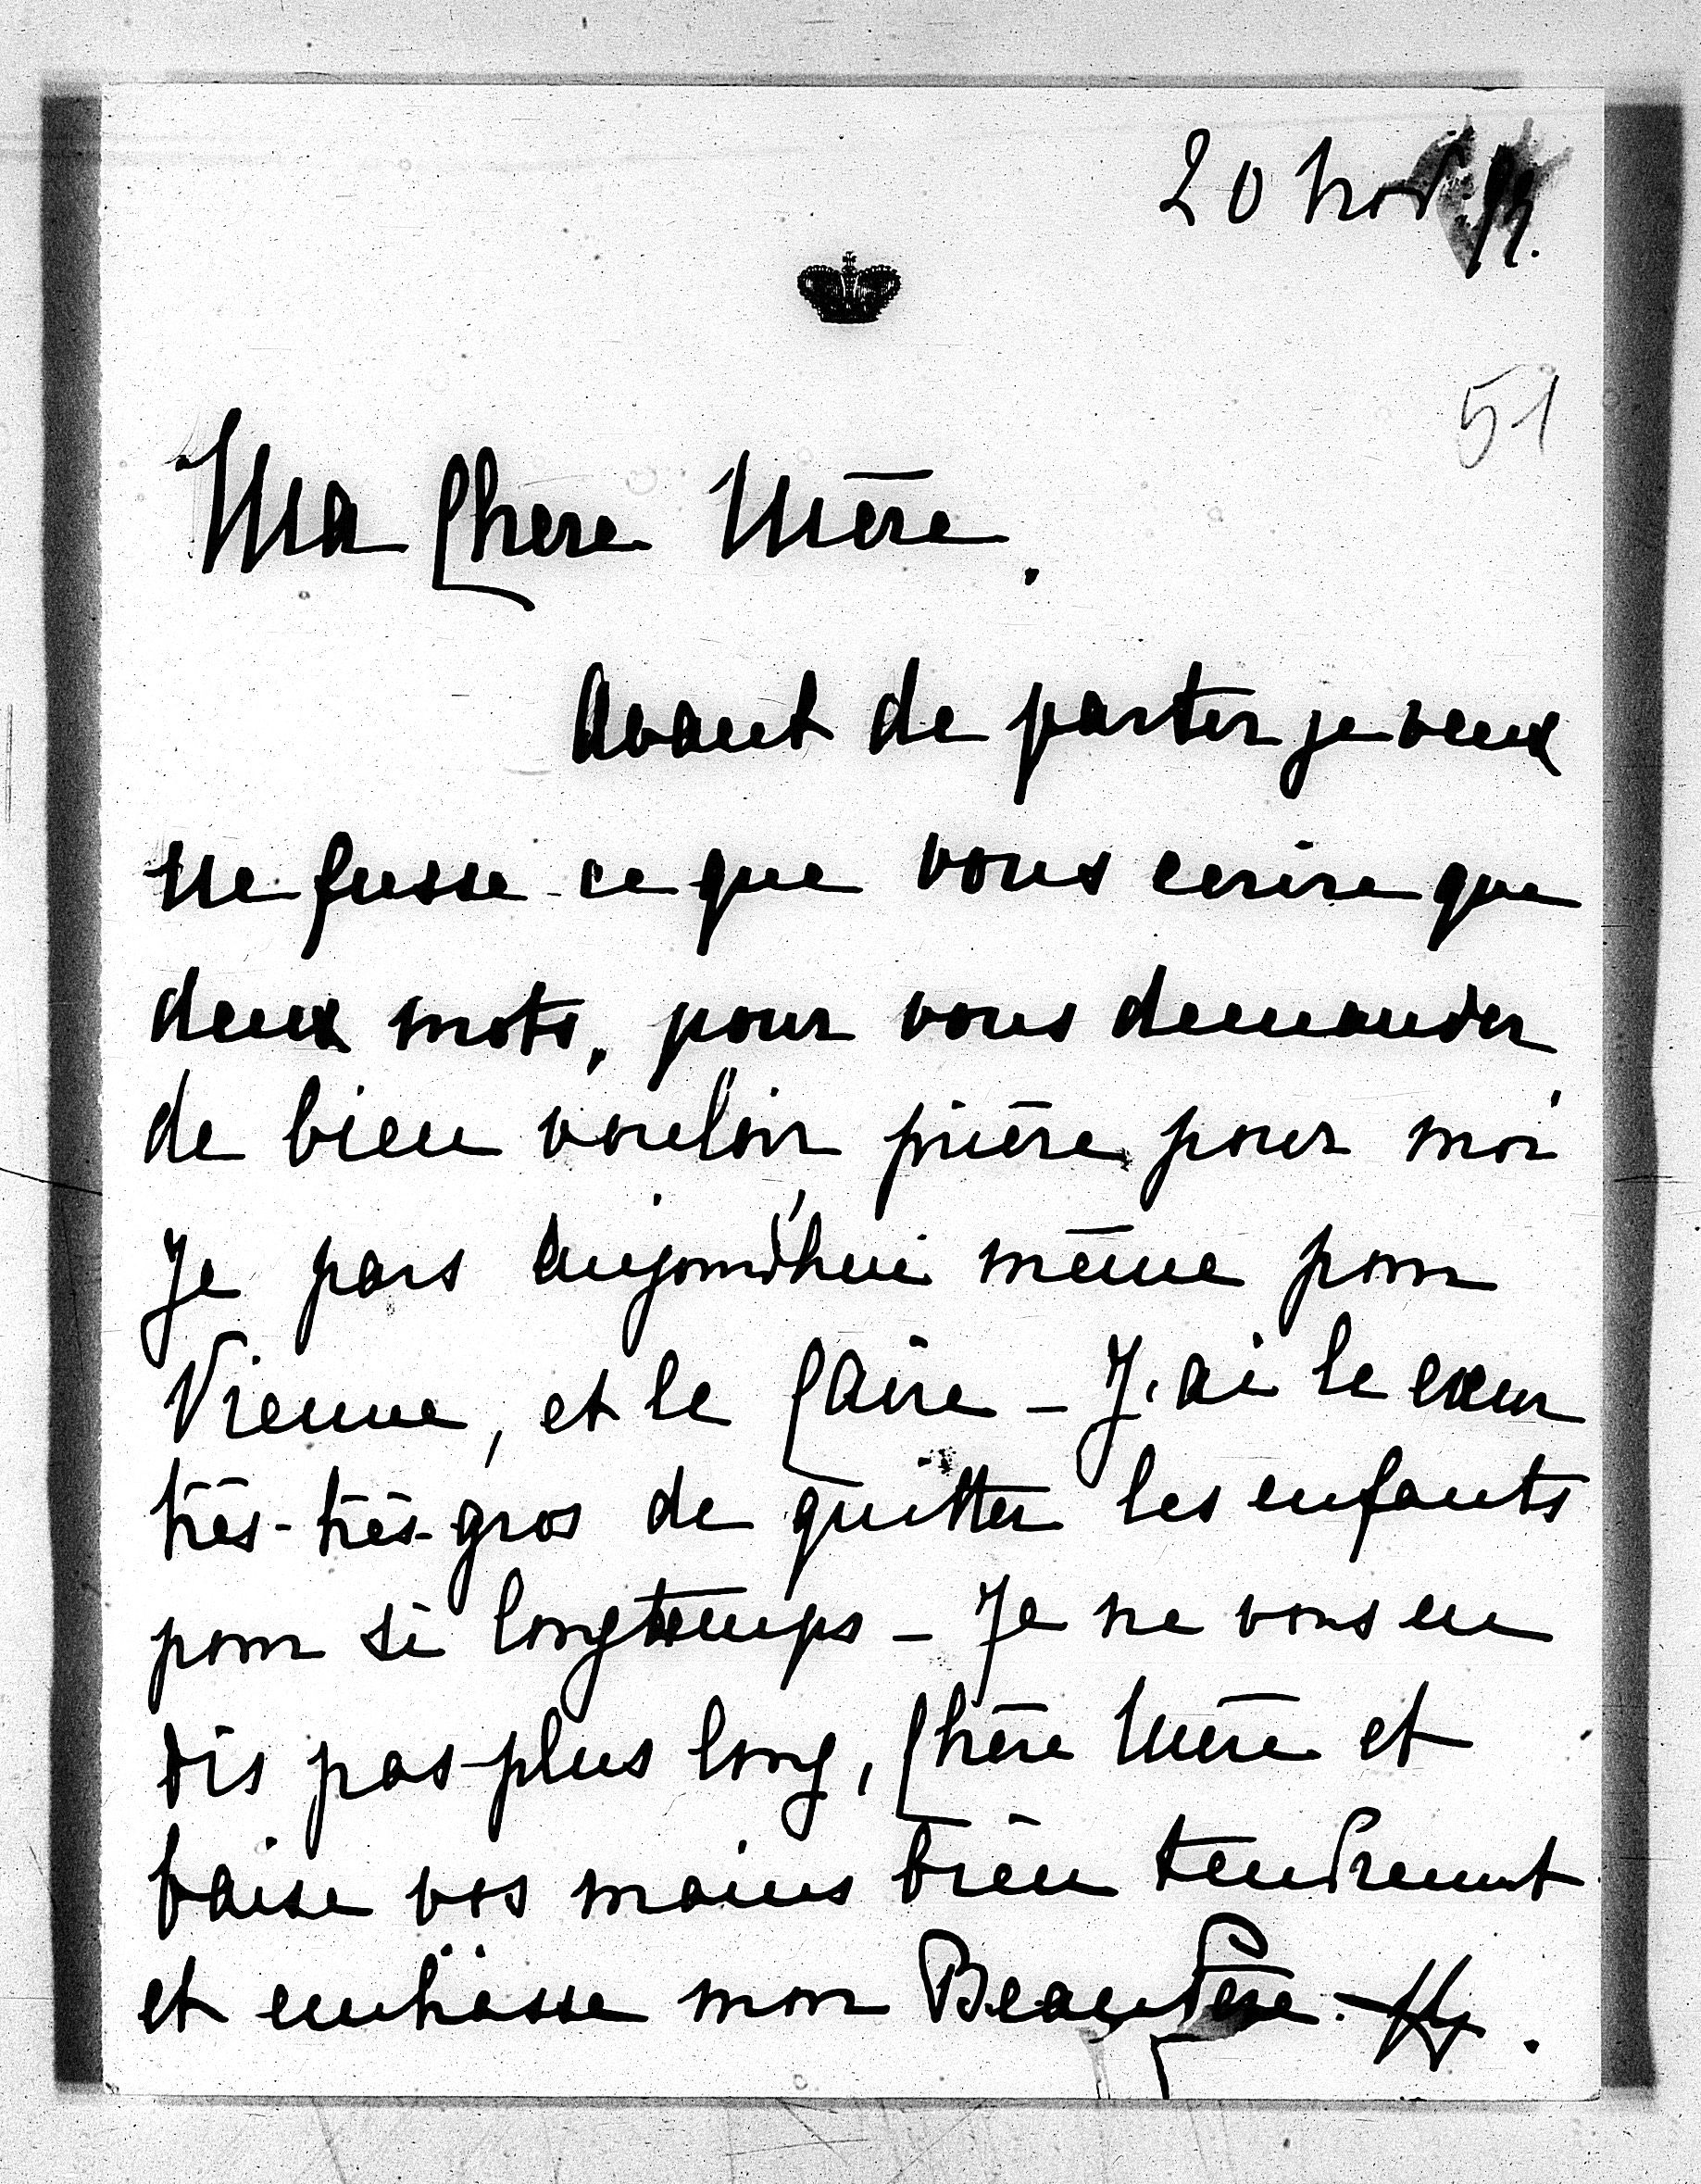 20 nov.
51
Ma Chere Mère.
Avant de partir je veux
ne fusse ce que vous ecrire que
deux mots, pour vous demander
de bien vouloir prière pour moi
Je pars aujourd'hui même pour
Vienne, et le Caire – J'ai le cœur
très-très-gros de quitter les enfants
pour si longtemps – Je ne vous en
dis pas plus long, Chère Mère et
baise vos mains bien tendrement
et embrasse mon Beau Père.